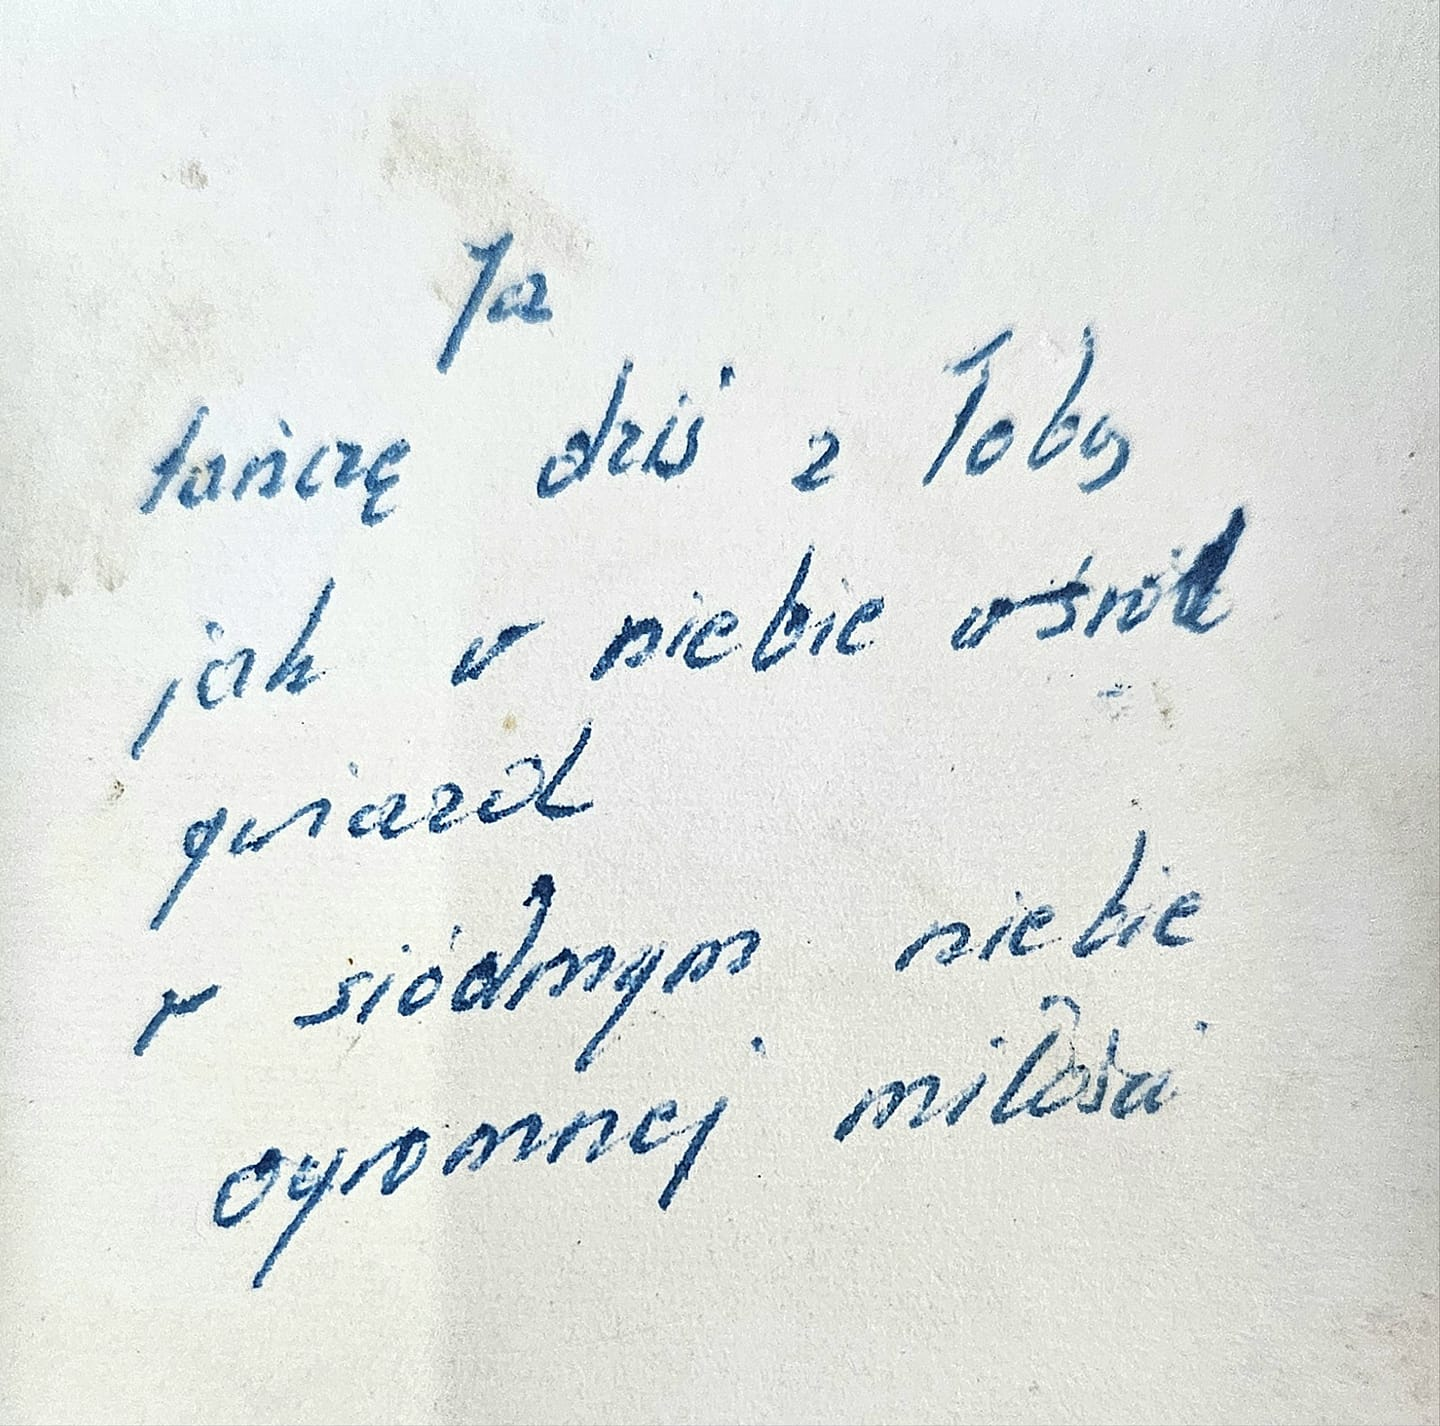 Ja
tańczę dziś z Tobą
jak w niebie wśród
gwiazd
w siódmym niebie
ogromnej miłości